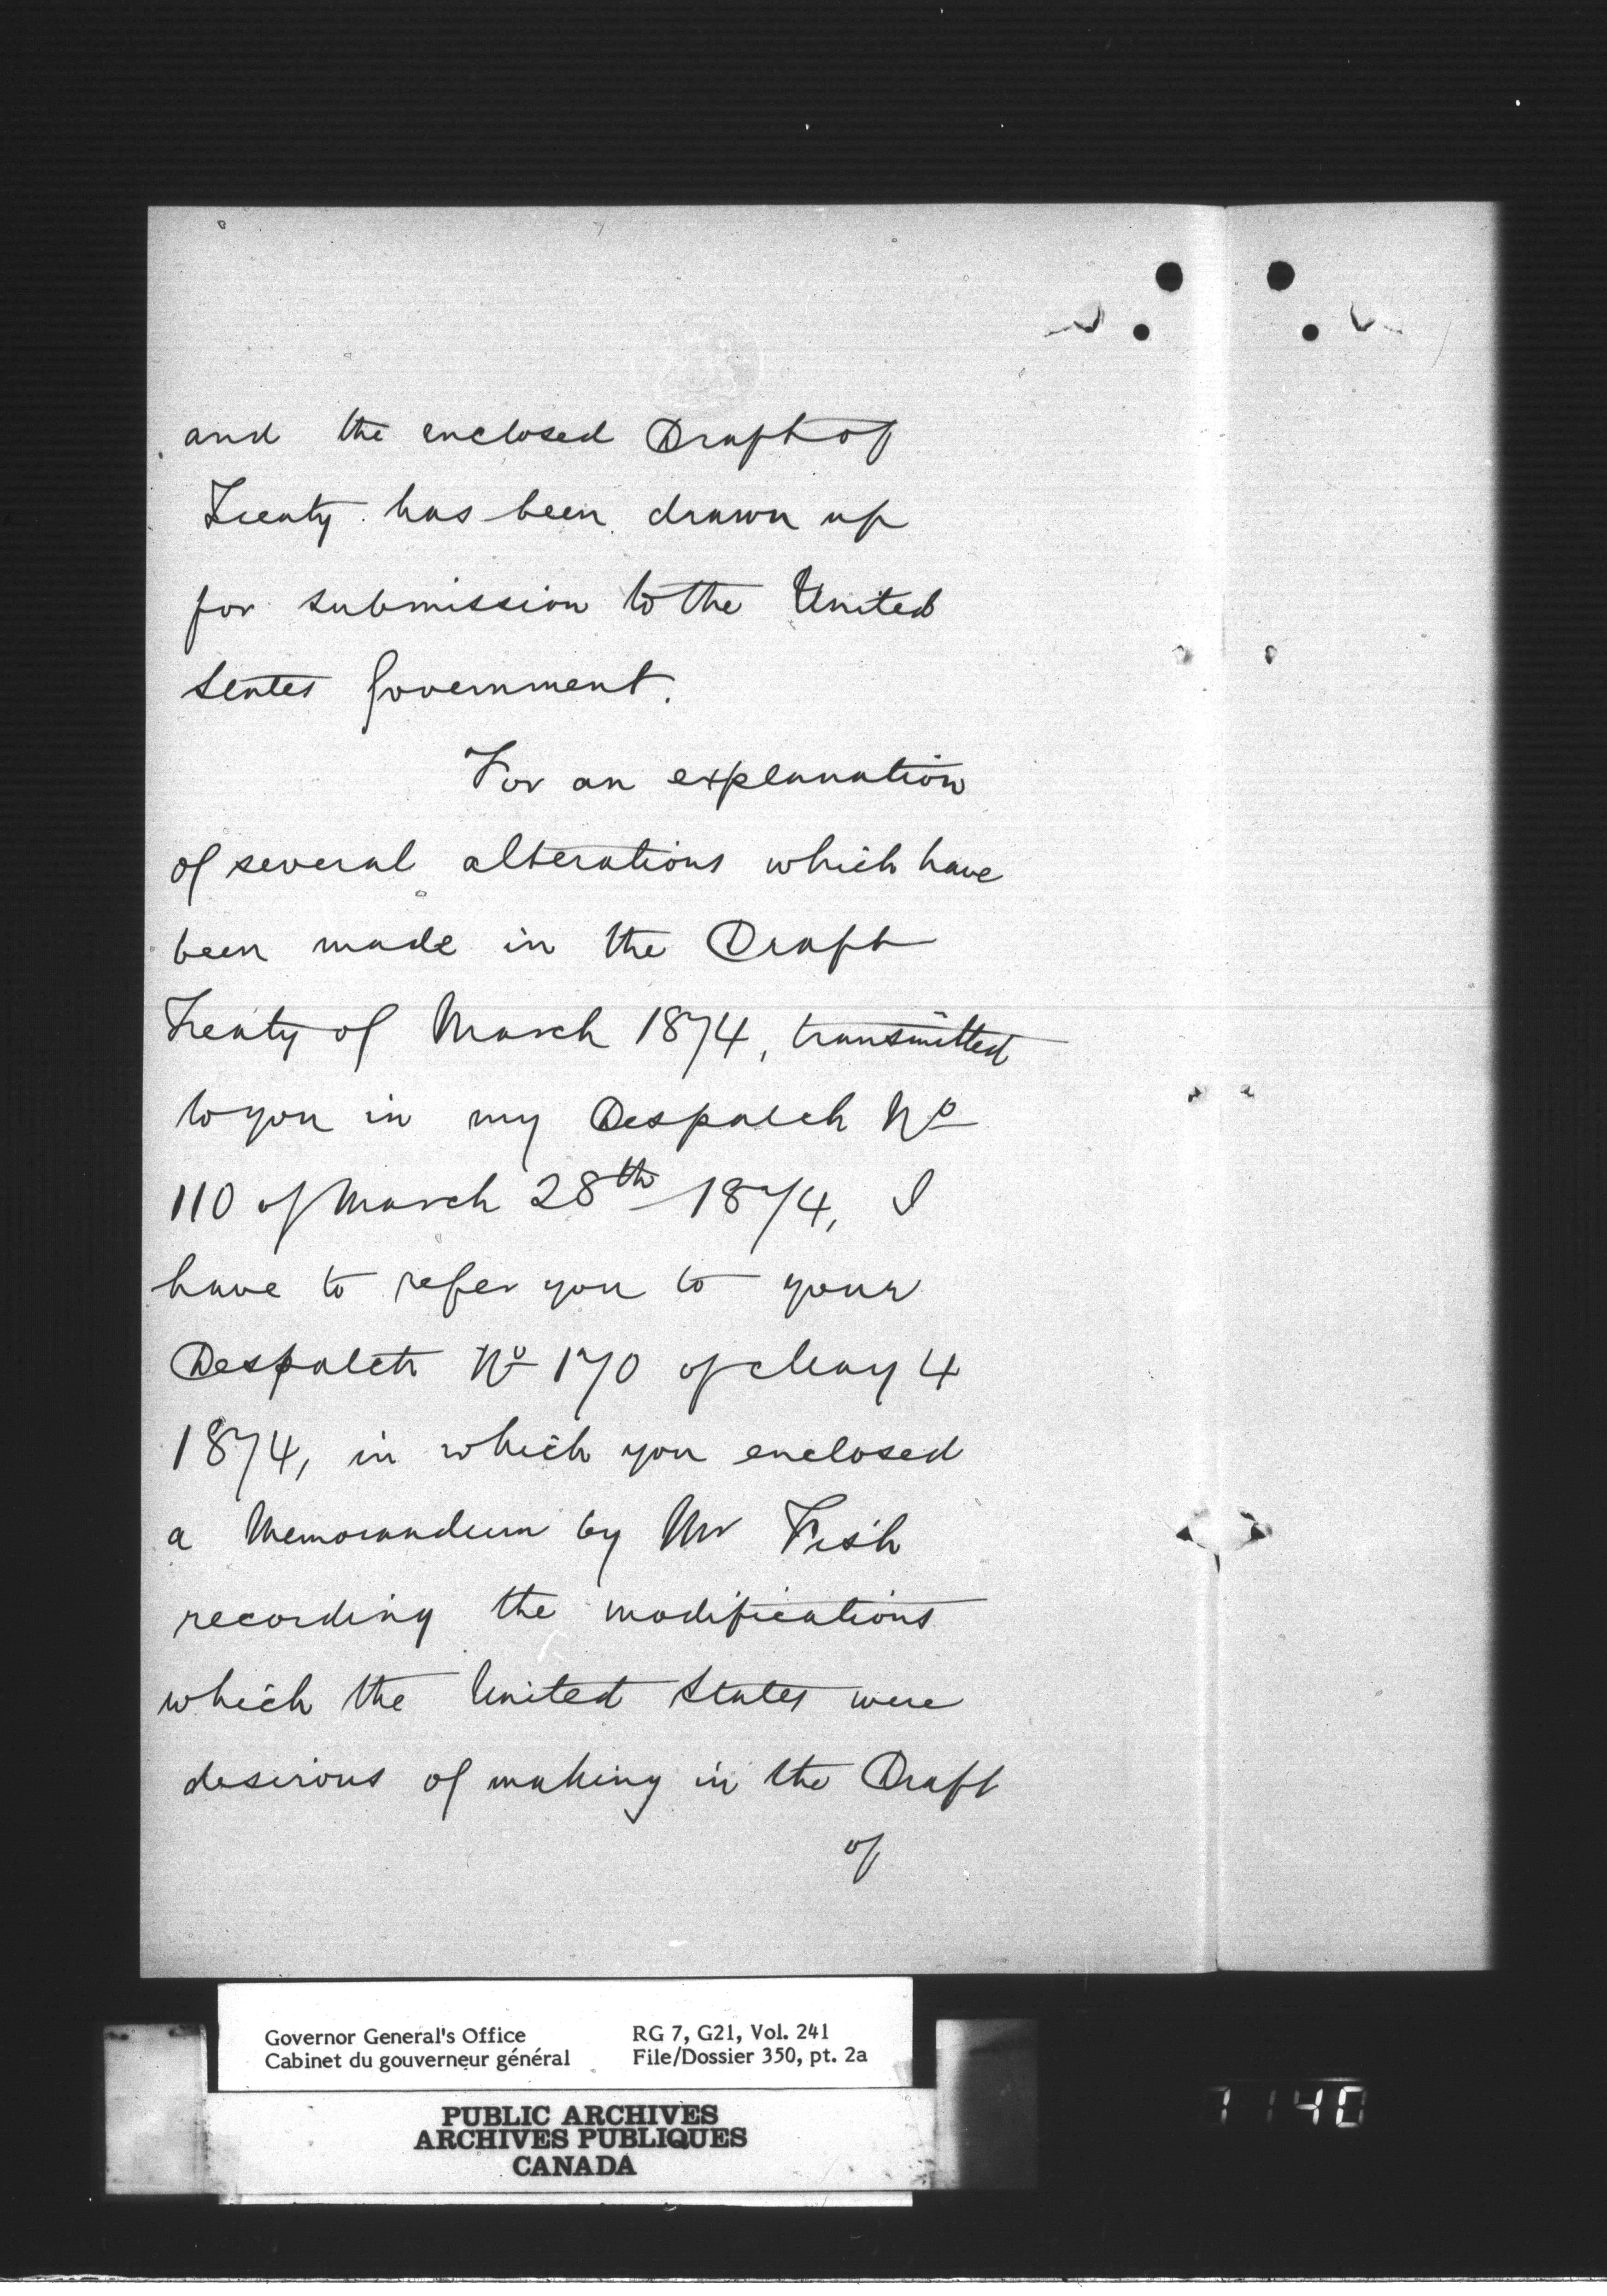 and the enclosed Draft of
Treaty has been drawn up
for submission to the United
States Government.
For an explanation
of several alterations which have
been made in the Draft
Treaty of March 1874, transmitted
to you in my Despatch No
110 of March 28th 1874, I
have to refer you to your
Despatch No 170 of May 4
1874, in which you enclosed
a Memorandum by Mr Fish
recording the modifications
which the United States were
desirous of making in the Draft
of
Governor General's Office RG 7, G21, Vol. 241
Cabinet du gouverneur général File/Dossier 350, pt. 2a
PUBLIC ARCHIVES
ARCHIVES PUBLIQUES
CANADA
1140